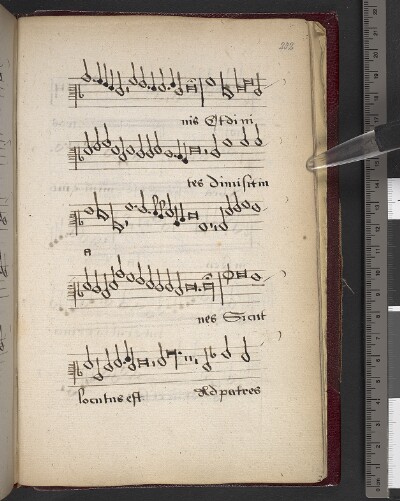 232
nis Et diui
tes dimisit in
a
nes Sicut
locutus est Ad patres